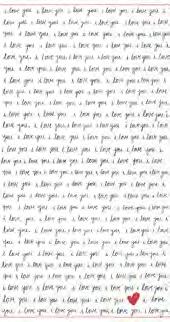 i love you i love you i love you i love you i
love you i love you i love you i love you
i love you i love you i love you i love you
love you i love you i love you i love you i
love you i love you i love you i love you i
you i love you i love you i love you i love
love you i love you i love you i love you i
love you i love you i love you i love you i
i love you i love you i love you i love you i
love you i love you i love you i love you i
you i love you i love you i love you i love
you i love you i love you i love you i love
love you i love you i love you i love you i
love you i love you i love you i love you i
i love you i love you i love you i love you
love you i love you i love you i love you i
love you i love you i love you i love you i
i love you i love you i love you i love you
love you i love you i love you i love you i
you i love you i love you i love you i love
i love you i love you i love you i love you
love you i love you i love you i love you i
you i love you i love you i love you i love
you i love you i love you i love you i love
i love you i love you i love you i love you
love you i love you i love you i love
you i love you i love you i love you i love you